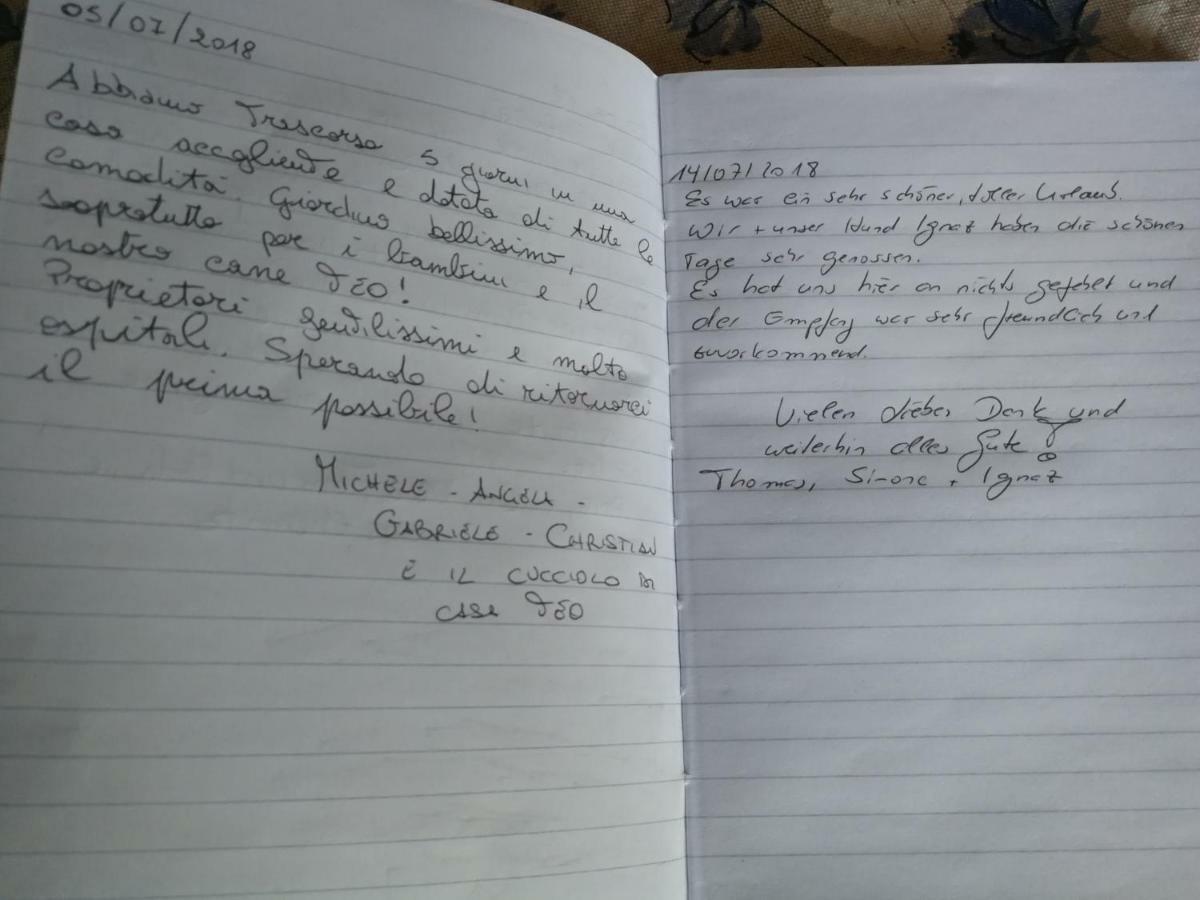 05/07/2018
Abbiamo Trascorso 5 giorni in una
casa accogliente e dotata di tutte le
comodità. Giardino bellissimo,
sopratutto per i bambini e il
nostro cane TEO!
Proprietari gentilissimi e molto
ospitali. Sperando di ritornarci
il prima possibile!
MICHELE - ANGELA -
GABRIELE - CHRISTIAN
E IL CUCCIOLO DI
CASA TEO
14/07/2018
Es war ein sehr schöner, toller Urlaub.
Wir + unser Hund Ignaz haben die schönen
Tage sehr genossen.
Es hat uns hier an nichts gefehlt und
der Empfang war sehr freundlich und
zuvorkommend.
Vielen lieben Dank und
weiterhin alles Gute!
Thomas, Simone + Ignaz